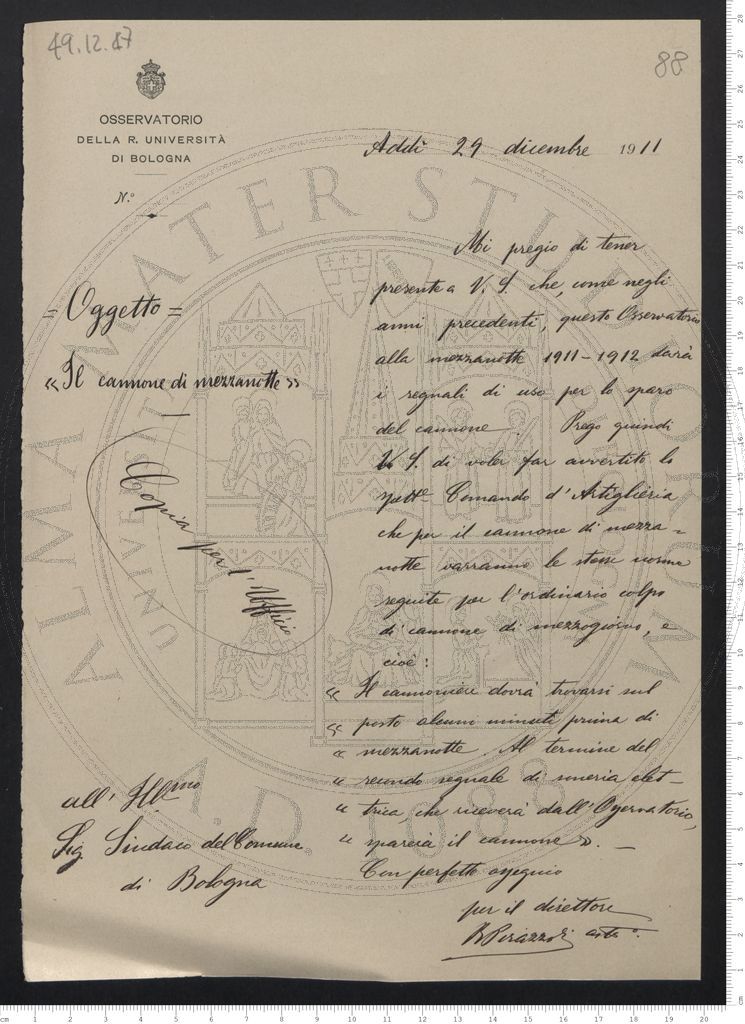 49.12.47
88
OSSERVATORIO
DELLA R. UNIVERSITÀ
DI BOLOGNA
N.°
Addì 29 dicembre 1911
= Oggetto =
« Il cannone di mezzanotte »
Copia per l'Ufficio
Mi pregio di tener
presente a V. S. che, come negli
anni precedenti, questo Osservatorio
alla mezzanotte 1911-1912 darà
i segnali di uso per lo sparo
del cannone. Prego quindi
V. S. di voler far avvertito lo
Comando d'Artiglieria
che per il cannone di mezza-
notte varranno le stesse norme
seguite per l'ordinario colpo
di cannone di mezzogiorno, e
cioè:
« Il cannoniere dovrà trovarsi sul
« posto alcuni minuti prima di
« mezzanotte. Al termine del
« secondo segnale di soneria elet-
« trica, che riceverà dall'Osservatorio,
« sparerà il cannone ». —
Con perfetto ossequio
per il direttore
R Pirazzoli astr°.
all' Ill.mo
Sig. Sindaco del Comune
di Bologna
ALMA MATER STUDIORUM
A.D. 1088